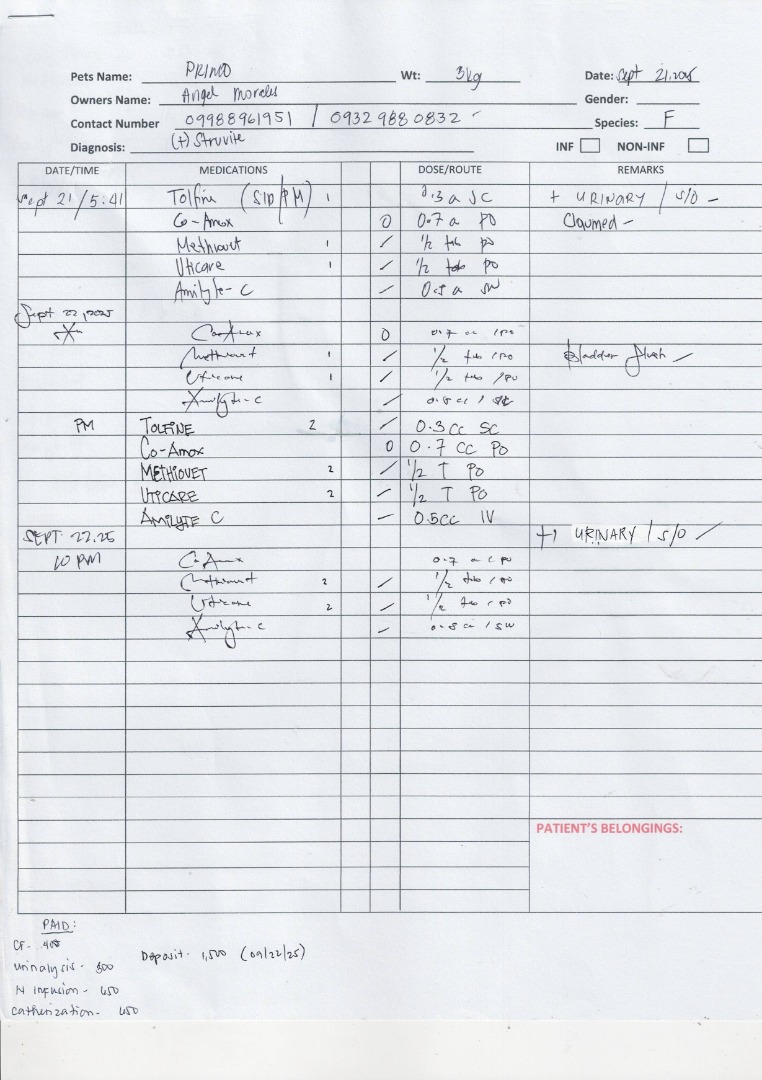 Pets Name: PRIMO Wt: 3kg Date: Sept 21, 2025
Owners Name: Angel Morales Gender:
Contact Number 09988961951 / 0932 988 0832 Species: F
Diagnosis: (+) Struvite INF NON-INF
DATE/TIME MEDICATIONS DOSE/ROUTE REMARKS
Sept 21 / 5:41 Tolfine (SID/PM) 1 0.3 SC + URINARY / S/O -
Co-Amox 0 0.7 PO
Methiovet 1 / 1/2 tab po
Uticare 1 / 1/2 tab po
Amilyte-C /
Sept 22, 2025
Co-Amox 0 0.7 cc / po
Methiovet 1 / 1/2 tab / po Bladder flush
Uticare 1 / 1/2 tab / po
Amilyte-C /
PM TOLFINE 2 / 0.3 CC SC
Co-Amox 0 0.7 CC PO
METHIOVET 2 / 1/2 T PO
UTICARE 2 / 1/2 T PO
AMILYTE C / 0.5cc IV
SEPT 22.25 URINARY / S/O /
10 PM Co-Amox 0.7 / po
Methiovet 2 / 1/2 tab / po
Uticare 2 / 1/2 tab / po
Amilyte-C /
PATIENT'S BELONGINGS:
PAID:
CF - 400
urinalysis - Deposit - 1,500 (09/22/25)
infusion - 650
catherization - 650